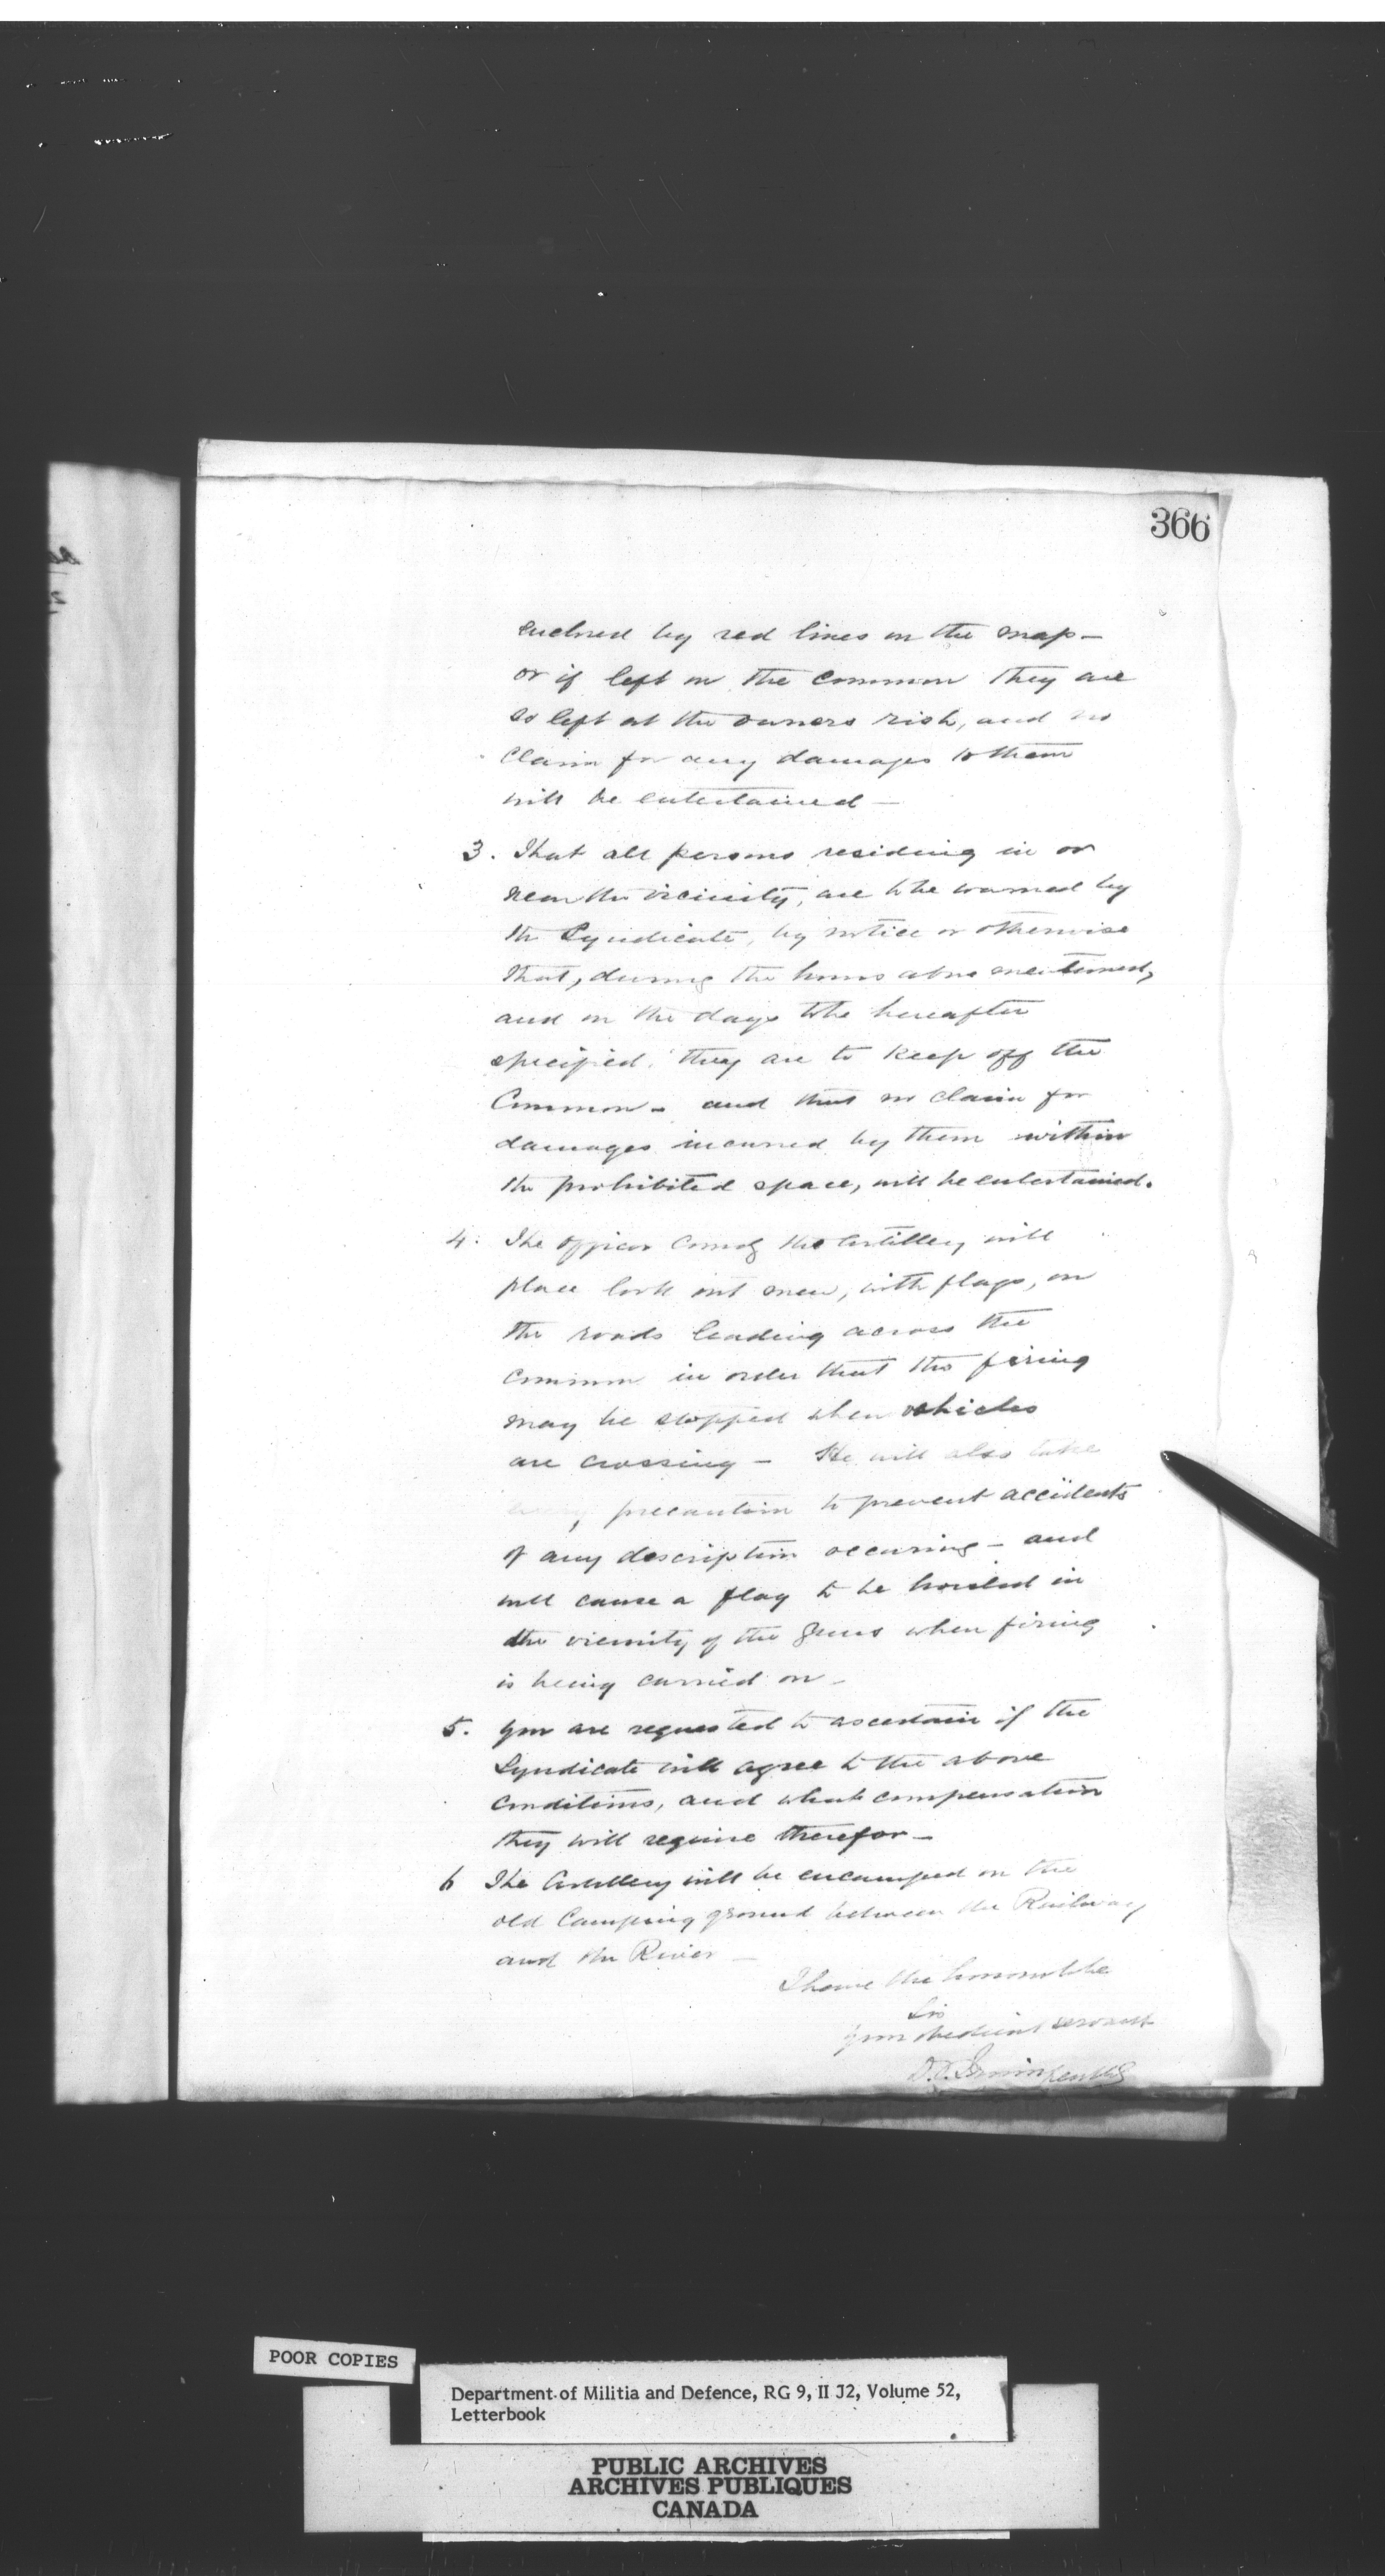 366
enclosed by red lines on the map—
or if left on the Common they are
so left at the owners risk, and no
claim for any damages to them
will be entertained —
3. That all persons residing in or
near the vicinity, are to be warned by
the Syndicate, by notice or otherwise
that, during the hours above mentioned,
and on the days to be hereafter
specified, they are to keep off the
Common - and that no claim for
damages incurred by them within
the prohibited space, will be entertained.
4. The officer Comdg the Artillery will
place look out men, with flags, on
the roads leading across the
common in order that the firing
may be stopped when vehicles
are crossing — He will also take
every precaution to prevent accidents
of any description occuring - and
will cause a flag to be hoisted in
the vicinity of the Guns when firing
is being carried on -
5. You are requested to ascertain if the
Syndicate will agree to the above
conditions, and what compensation
they will require therefor —
6 The Artillery will be encamped on the
old Camping ground between the Railway
and the River —
I have the honor to be
Sir
Your obedient servant
D.T. Irwin
POOR COPIES
Department of Militia and Defence, RG 9, II J2, Volume 52,
Letterbook
PUBLIC ARCHIVES
ARCHIVES PUBLIQUES
CANADA